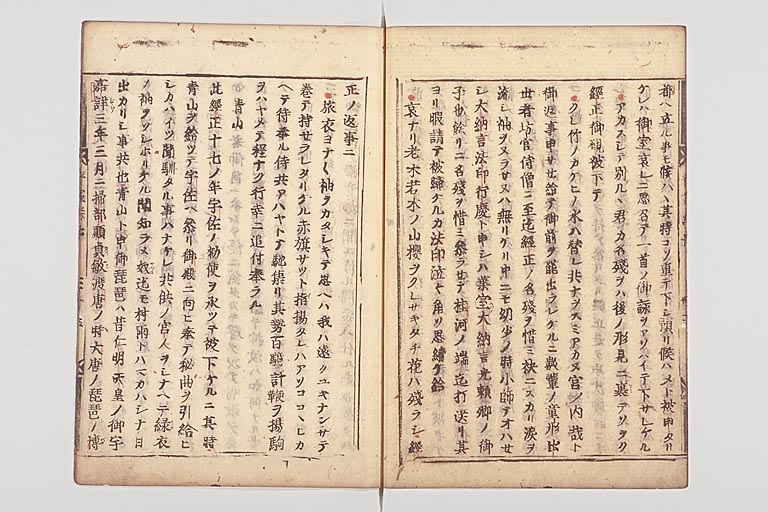 都ヘ立帰ル事モ候ハヽ其時コソ重テ下シ預リ候ハメト被申タリ
ケレハ御室哀レニ思召テ一首ノ御詠ヲアソハイテ下サレケル
アカスシテ別ルヽ君カ名残ヲハ後ノ形見ニ裹テソヲク
経正御硯被下テ
クレ竹ノカケヒノ水ハ替レ共ナヲスミアカヌ宮ノ内哉ト
御返事申サセ給テ御前ヲ罷出ラレケルニ数輩ノ童形出
世者坊官侍僧ニ至迄経正ノ名残ヲ惜ミ袂ニスカリ涙ヲ
流シ袖ヲヌラサヌハ無リケリ中ニモ幼少ノ時小師テオハセ
シ大納言法印行慶ト申シハ葉室大納言光頼卿ノ御
子也余リニ名残ヲ惜ミ参ラセテ桂河ノ端迄打送リ其
ヨリ暇請テ被帰ケルカ法印泣々角ソ思続ケ給
哀ナリ老木若木ノ山櫻ヲクレサキタチ花ハ残ラシ 経
正ノ返事ニ
旅衣ヨナ〱袖ヲカタシキテ思ヘハ我ハ遠クユキナンサテ
巻テ持セラレタリケル赤旗サツト指揚タレハアソココヽヒカ
ヘテ待奉ル侍共アハヤトテ馳集リ其勢百騎計鞭ヲ揚駒
ヲハヤメテ程ナク行幸ニ追付奉ラル
青山
此経正十七ノ年宇佐ノ勅使ヲ承ツテ被下ケルニ其時
青山ヲ給ツテ宇佐ヘ参リ御殿ニ向ヒ奉テ秘曲ヲ引給ヒ
シカハイツ聞馴タル事ハナケレ共供ノ宮人ヲシナヘテ緑衣
ノ袖ヲソシホリケル聞知ラヌ奴迄モ村雨トハマカハシナ目
出カリシ事共也青山ト申御琵琶ハ昔仁明天皇ノ御宇
嘉祥三年三月ニ掃部頭貞敏渡唐ノ時大唐ノ琵琶ノ博